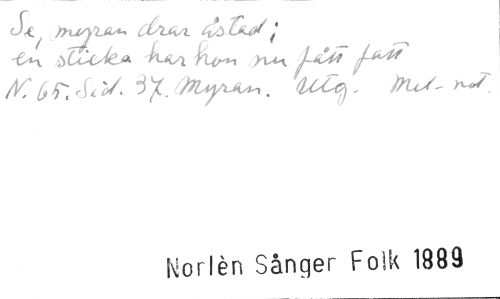 Se, myran drar åstad;
en sticka har hon nu fått fatt
N. 65. Sid. 37. Myran. Utg. Mel-not.
Norlèn Sånger Folk 1889